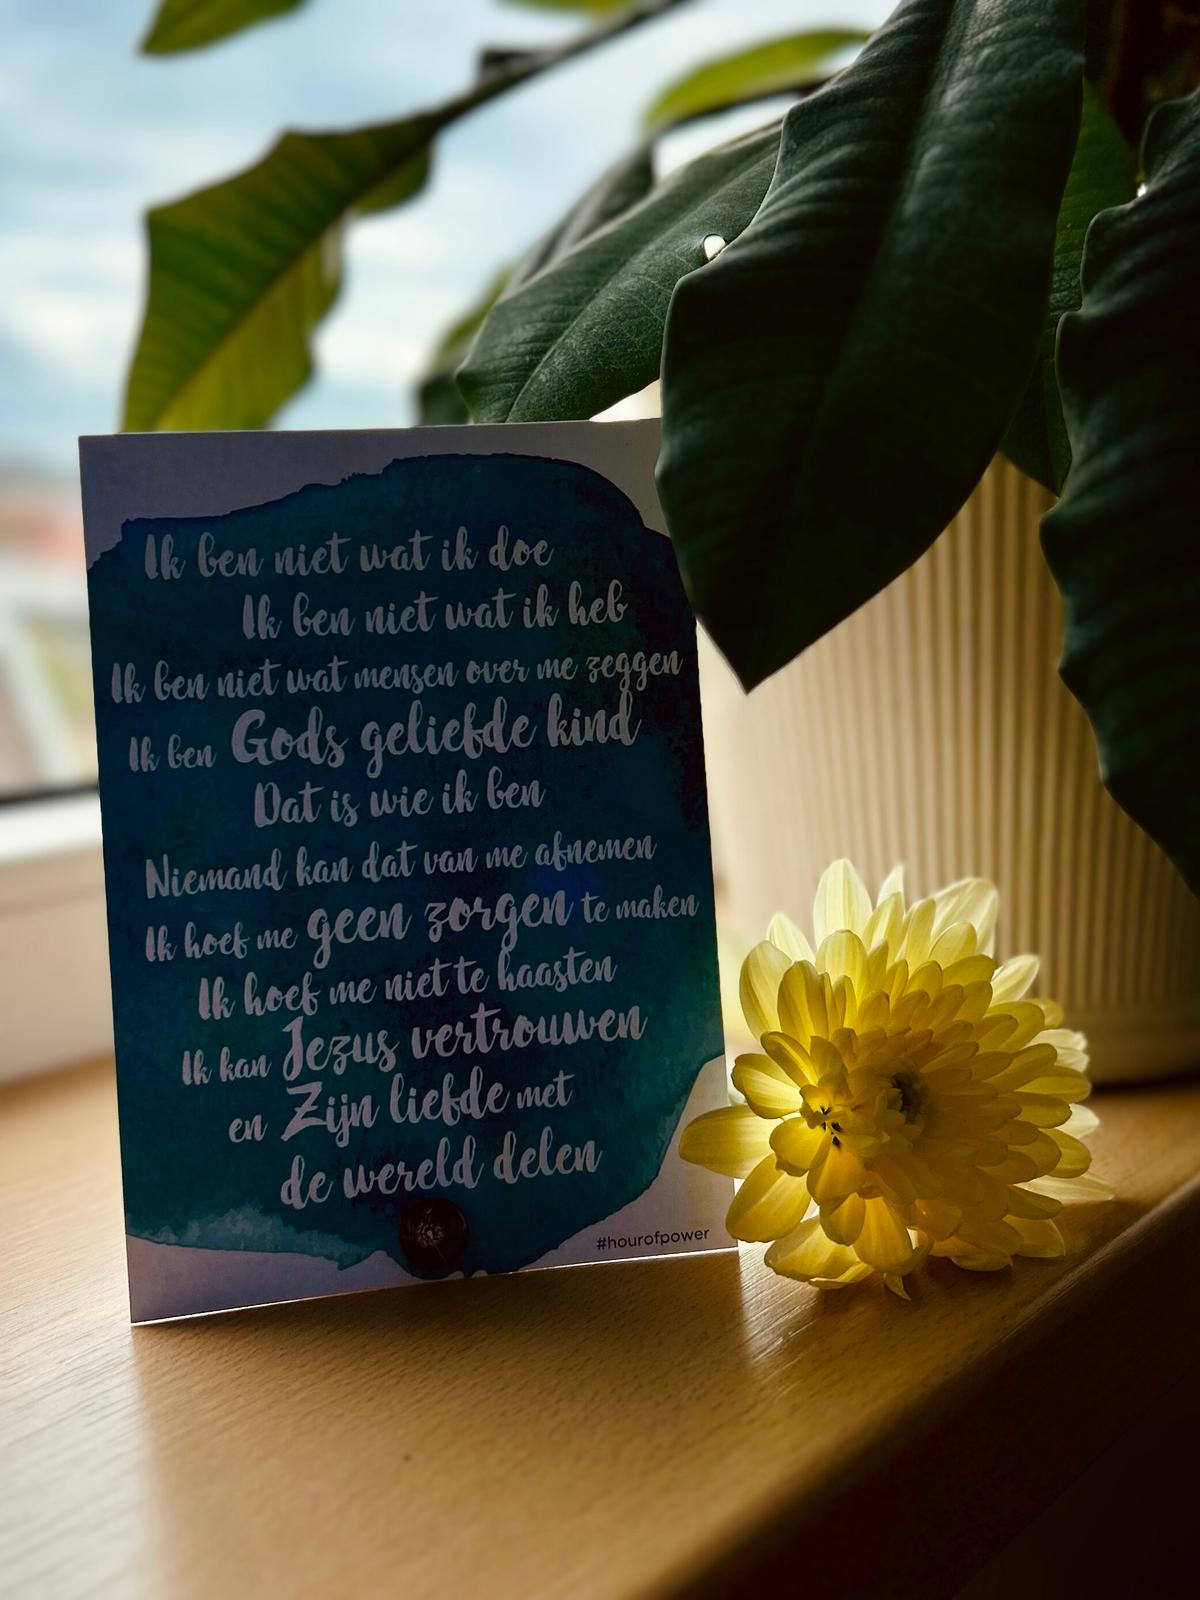 Ik ben niet wat ik doe
Ik ben niet wat ik heb
Ik ben niet wat mensen over me zeggen
Ik ben Gods geliefde kind
Dat is wie ik ben
Niemand kan dat van me afnemen
Ik hoef me geen zorgen te maken
Ik hoef me niet te haasten
Ik kan Jezus vertrouwen
en Zijn liefde met
de wereld delen
#hourofpower